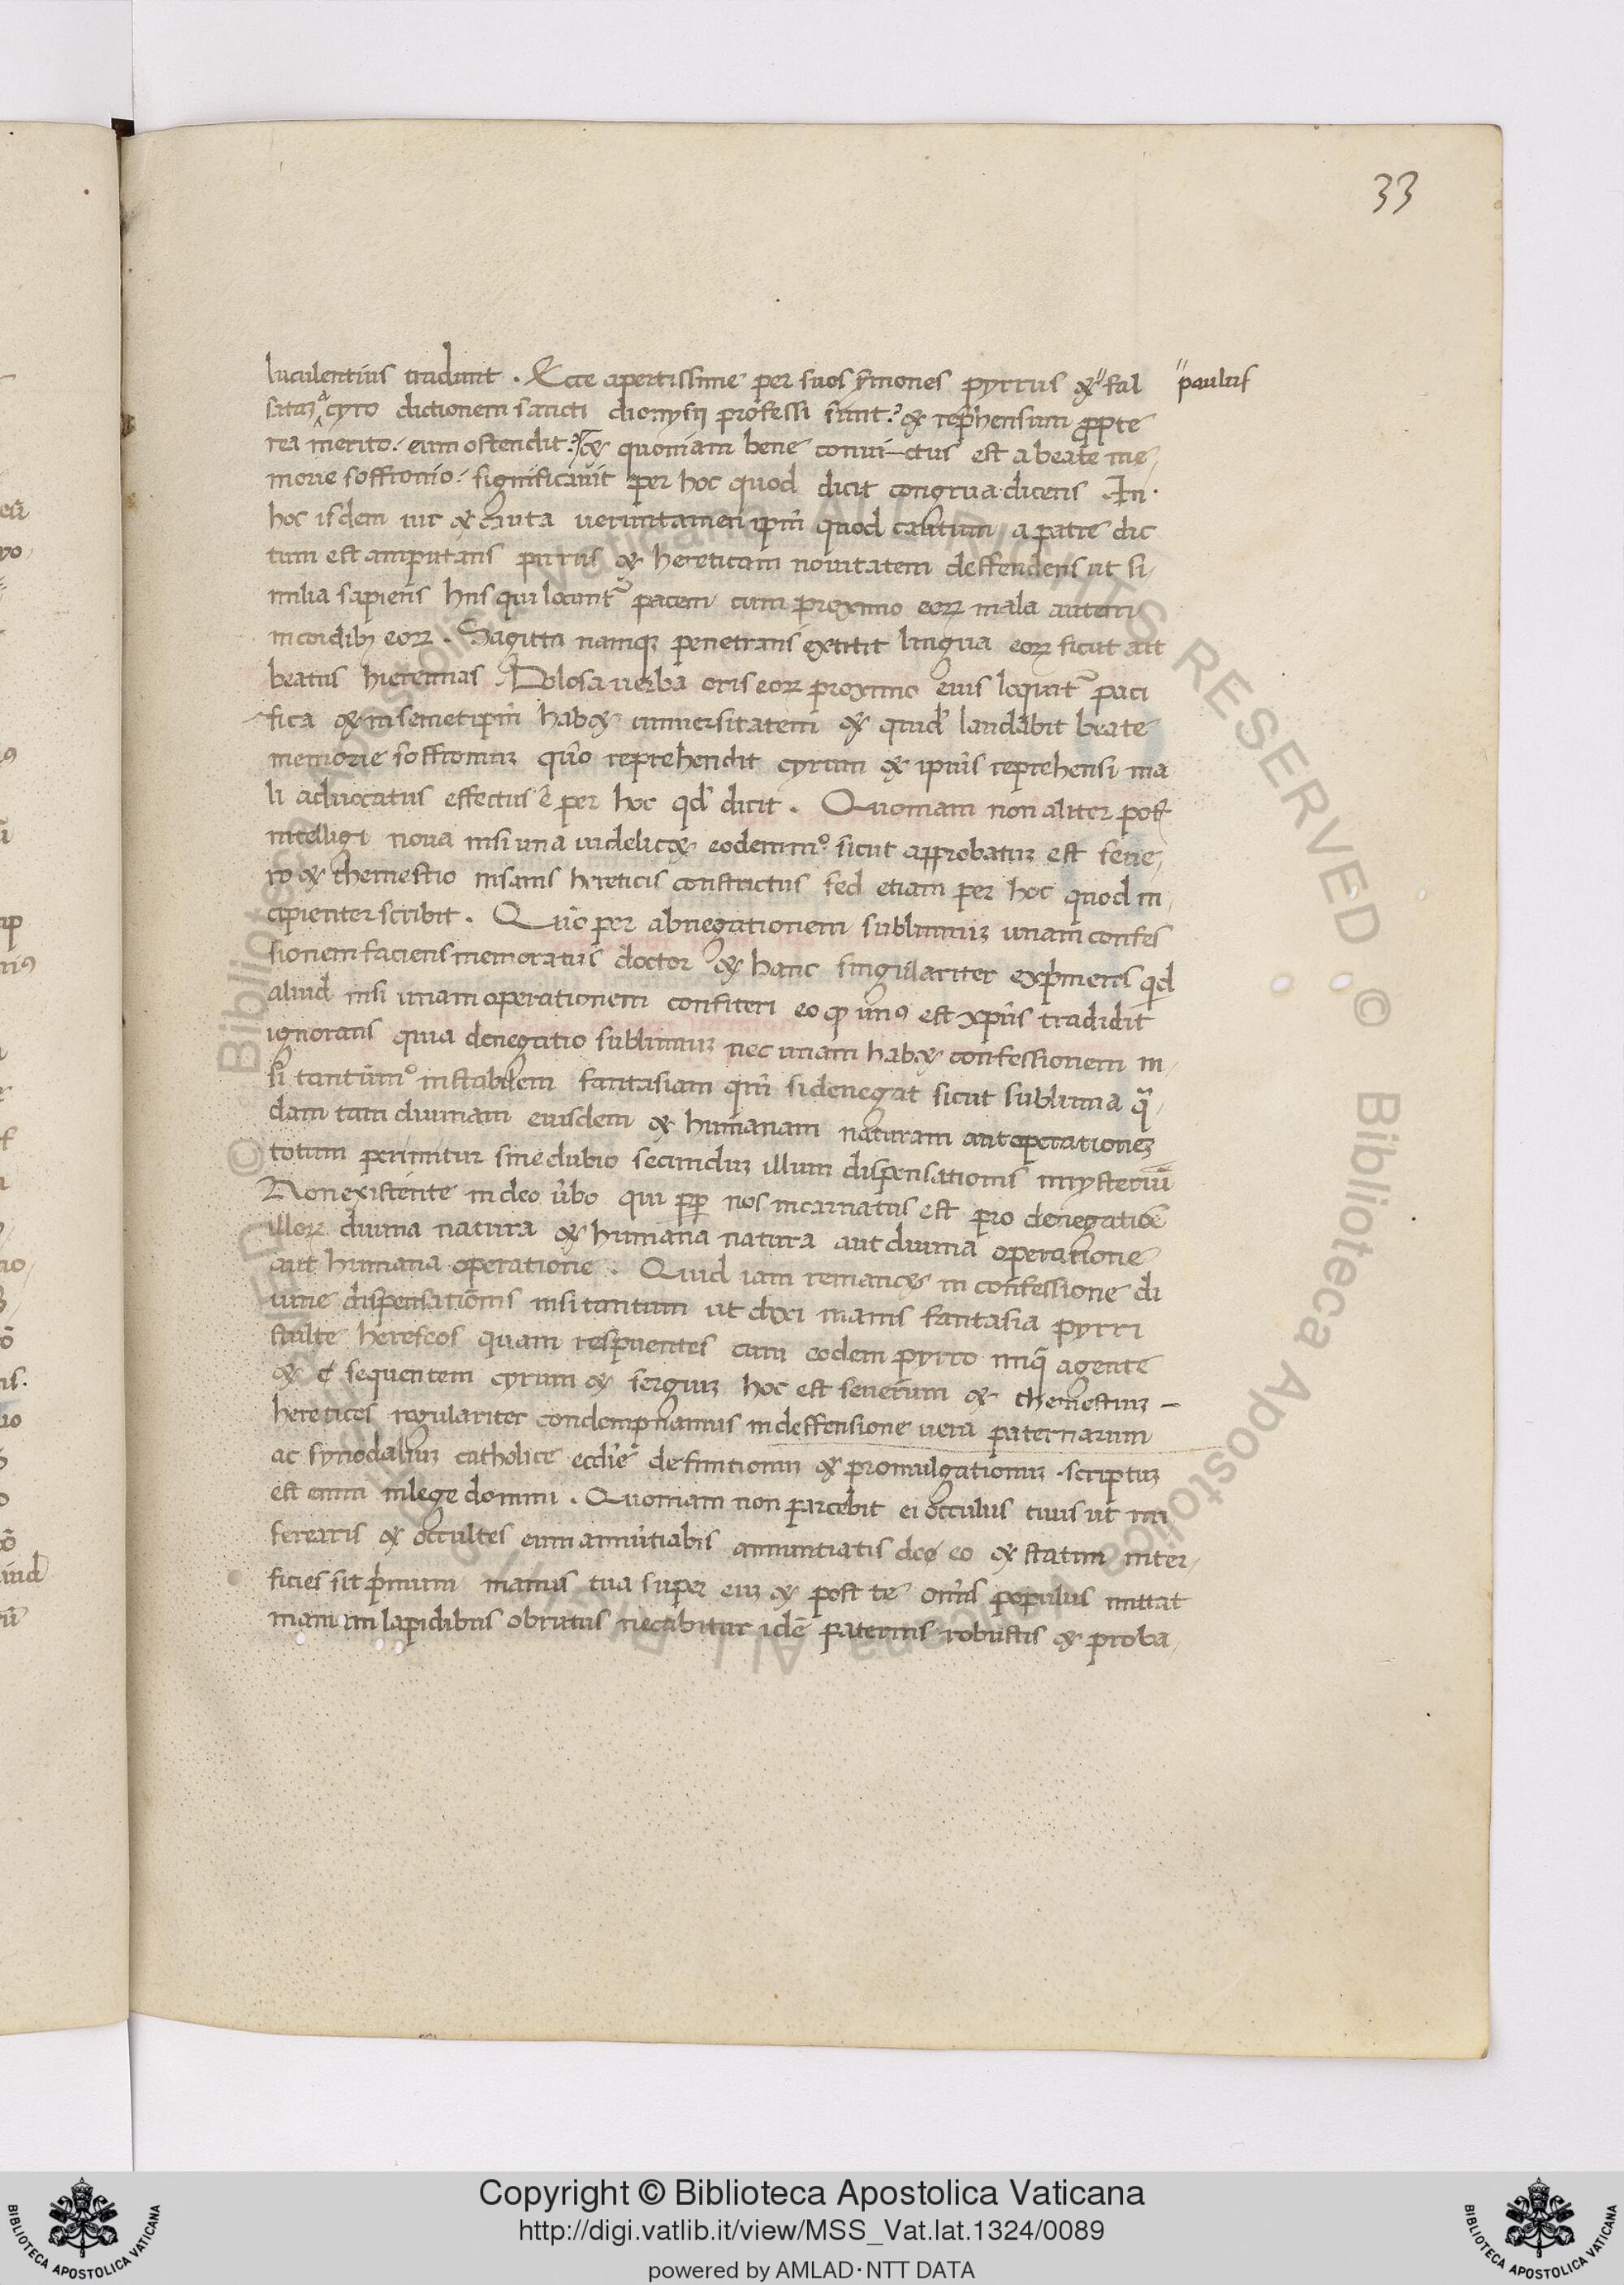 33
luculentius tradunt . Ecce apertissime per suos s̄mones pyrrus & " fal " paulus
satuʒ a cyro dictionem sancti dionysii professi sunt : & rep̄hensum ꝓpte
rea merito : eum ostendit : & quoniam bene convi-ctus est a beate me,
morie soffronio : significavit per hoc quod dicit congrua dicens . In .
hoc isdem vir & cauta veruntamen ip̄m quod cautum a patre dic
tum est amputans pirrus & hereticam novitatem deffendens ut si,
milia sapiens hiis qui locunt᷑ pacem cum proximo eoꝝ mala autem
in cordibꝫ eoꝝ . Sagitta namqꝫ penetrans extitit lingua eoꝝ sicut ait
beatus hieremias . Dolosa verba oris eoꝝ proximo eius loquit᷑ paci
fica & in semetip̄m habet & quid laudabit beate
memorie soffroniuʒ quō reprehendit cyrum & ip̄ius reprehensi ma
li advocatus effectus ē per hoc qd̄ dicit . Quoniam non aliter pot᷑
intelligi nova nisi una videlicet eodem mº sicut approbatuʒ est seve,
ro & themestio insanis hereticis constrictus sed etiam per hoc quod in
cipienter scribit . Quō per abnegationem sublimiuʒ unam confes
sionem faciens memoratus doctor & hanc singulariter exp̄mens qd̄
aliud nisi unam operationem confiteri eo ꝙ unꝰ est xp̄us tradidit
ignorans quia denegatio sublimiuʒ nec unam habet confessionem ni,
si tantūmº instabilem fantasiam qm̄ si denegat sicut sublimia q̄,
dam tam divinam eiusdem & humanam naturam aut operationeʒ
totum perimitur sine dubio secunduʒ illum dispensationis mysteriū
Non existente in deo v̄bo qui ꝓpt nos incarnatus est pro denegatiōe
illoꝝ divina natura & humana natura aut divina operatione
aut humana operatione . Quid iam remanet in confessione di
vine dispensationis nisi tantum ut dixi inanis fantasia pyrri
stulte hereseos quam respuentes cum eodem pyrro iniq̄ agente
& sequentem cyrum & sergiuʒ hoc est severum & themestiuʒ -
heretices regulariter condempnamus in deffensione vera paternarum
ac synodaliuʒ catholice ecclīe definitionuʒ & promulgationuʒ . scriptuʒ
est enim in lege domini . Quoniam non parcebit ei occulus tuus ut mi
serearis & occultes eum annuntiabis annuntiatis de eo & statim inter,
ficies sit p̄mum manus tua super euʒ & post te om̄is populus mittat
manum lapidibus obrutus necabitur idē paternis robustis & proba,
Copyright © Biblioteca Apostolica Vaticana
http://digi.vatlib.it/view/MSS_Vat.lat.1324/0089
powered by AMLAD·NTT DATA